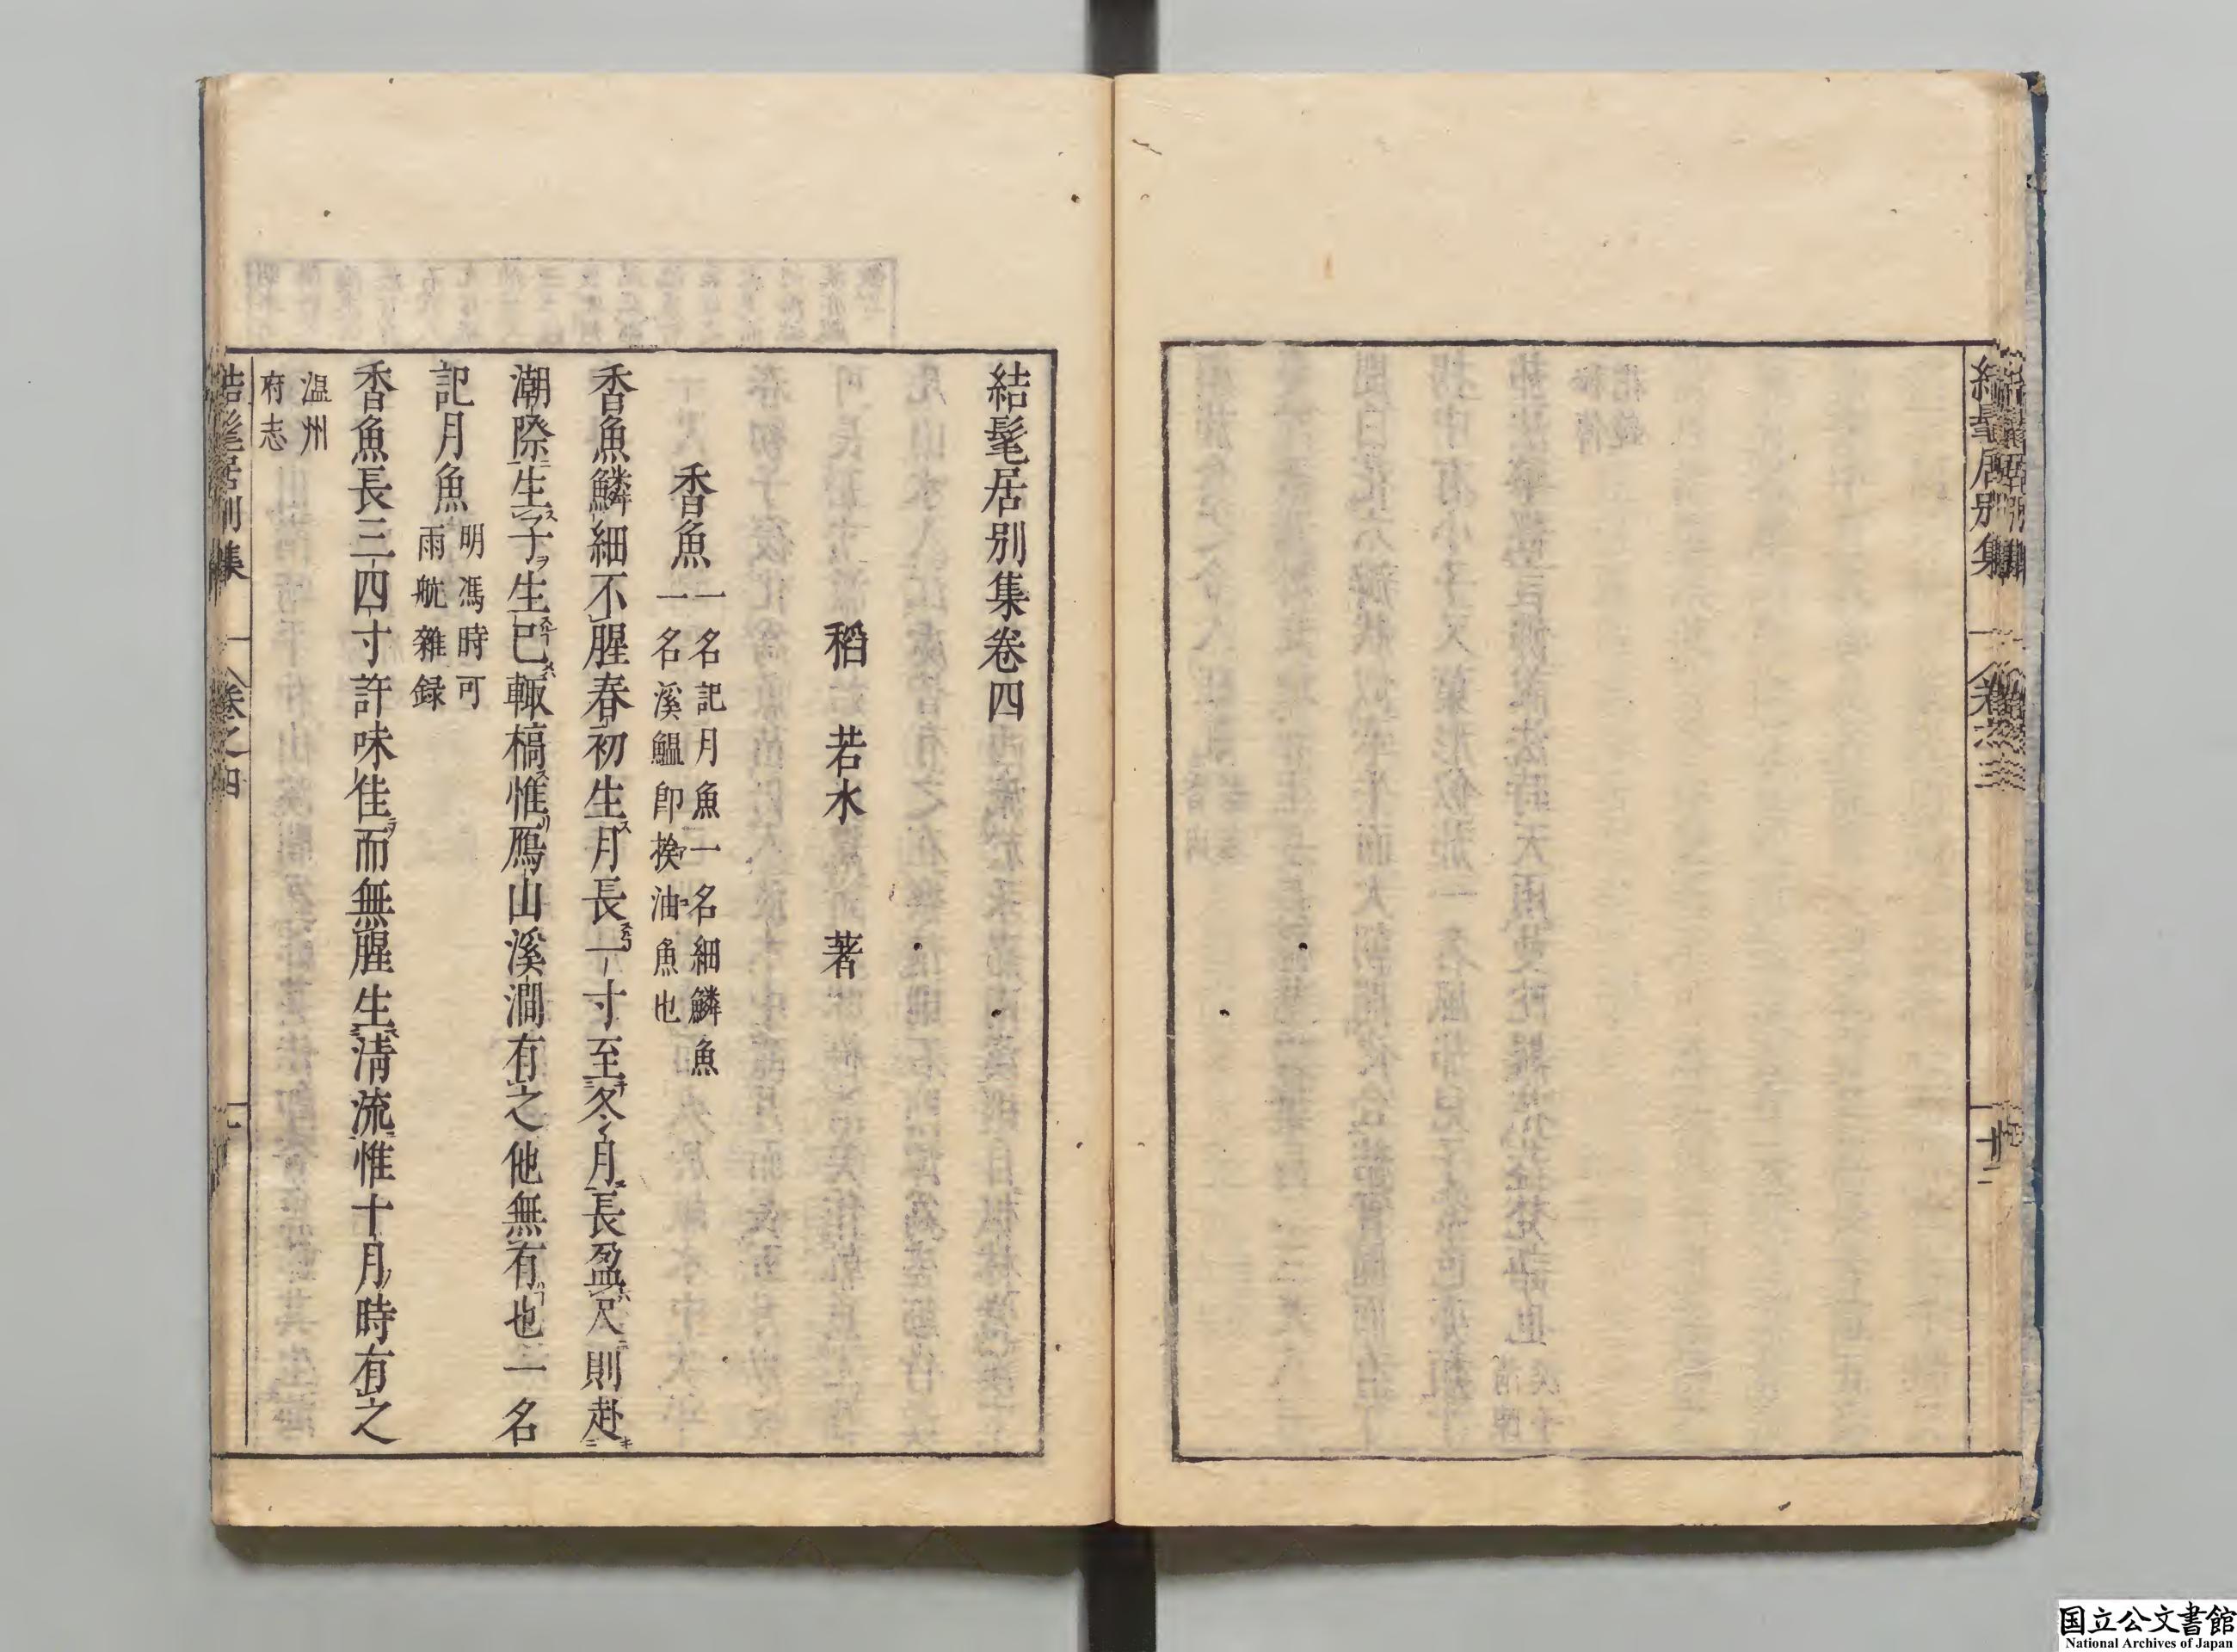 結髦居別集
卷之三
十二
結髦居別集卷四
稻 若水 著
香魚 一名記月魚一名細鱗魚
一名溪鰮卽換油魚也
香魚鱗細不腥春初生月長一寸至冬月長盈尺則赴
潮際生子生已輙槁惟鴈山溪澗有之他無有也一名
記月魚 明馮時可
雨航雜録
香魚長三四寸許味佳而無腥生淸流惟十月時有之
温州
府志
結髦居別集
卷之四
国立公文書館
National Archives of Japan